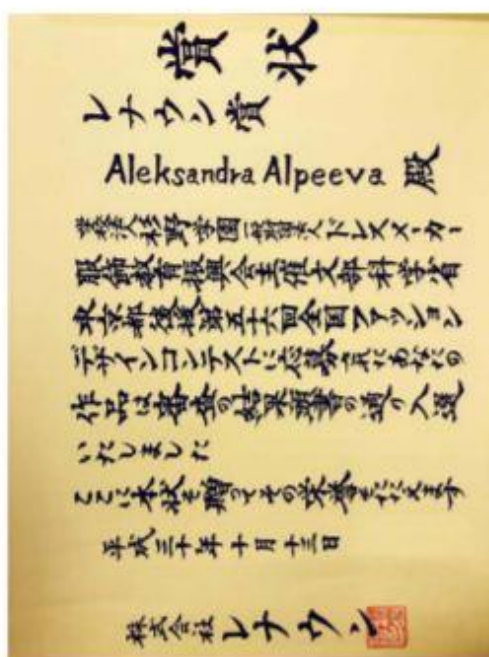 賞状
レナウン賞
Aleksandra Alpeeva 殿
学校法人杉野学園一般財団法人ドレスメーカー
服飾教育振興会主催文部科学省
東京都後援第五十六回全国ファッション
デザインコンテストに応募されたあなたの
作品は審査の結果頭書の通り入選
いたしました
ここに本状を贈ってその栄誉をたたえます
平成三十年十月十三日
株式会社レナウン